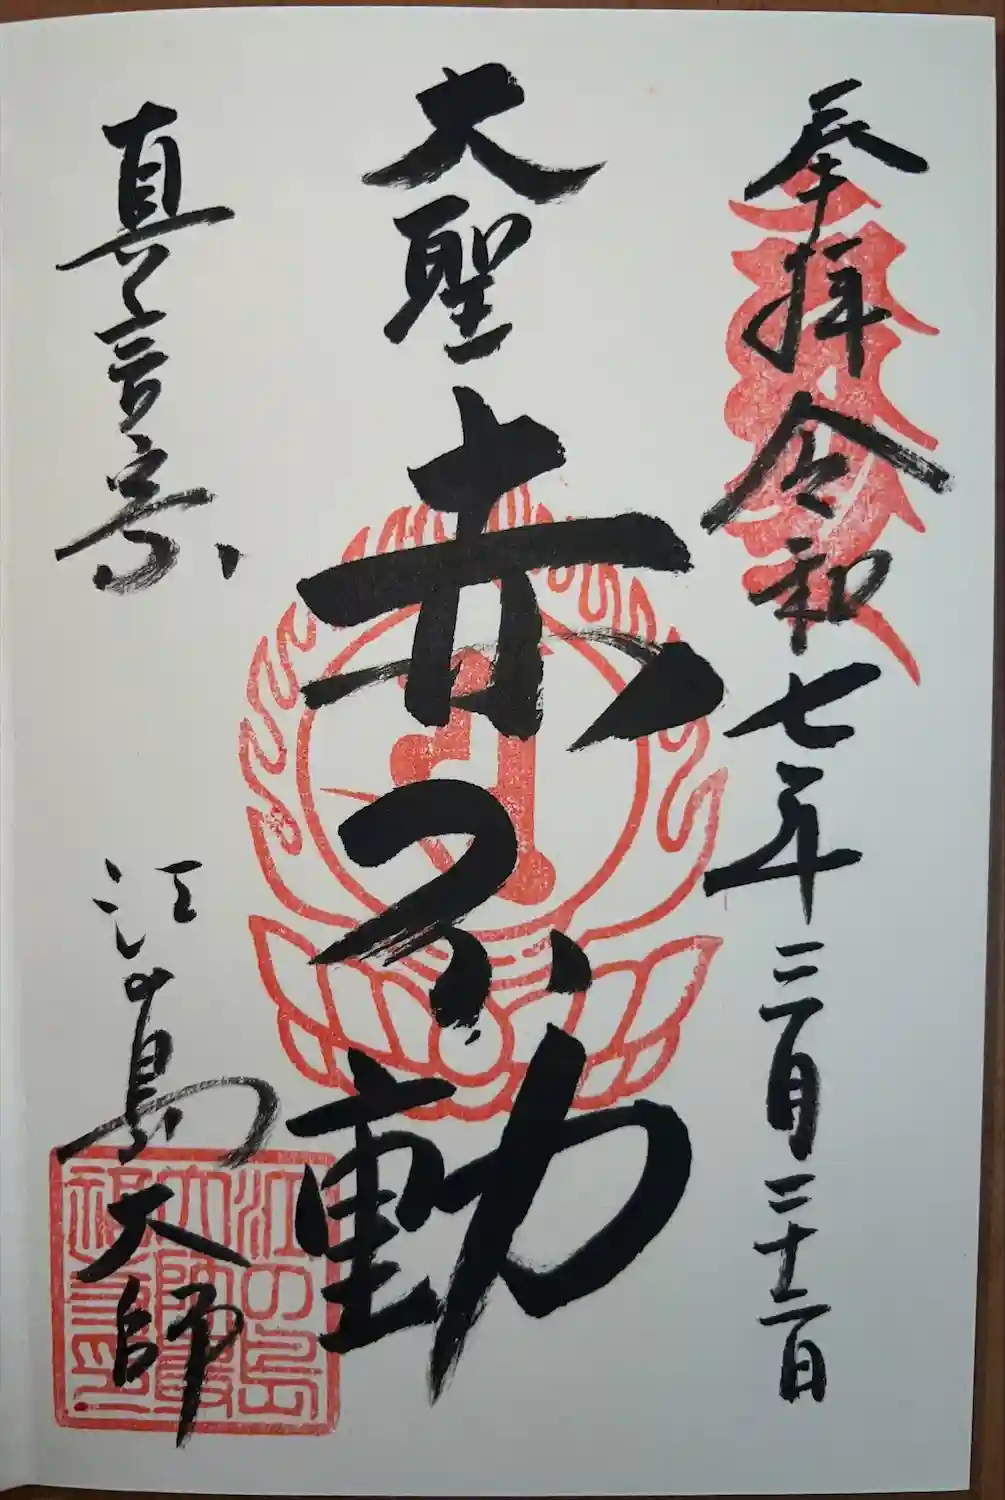 奉拝 令和七年三月二十二日
大聖 赤不動
真言宗 江の島大師
江の島
大師最
福寺印